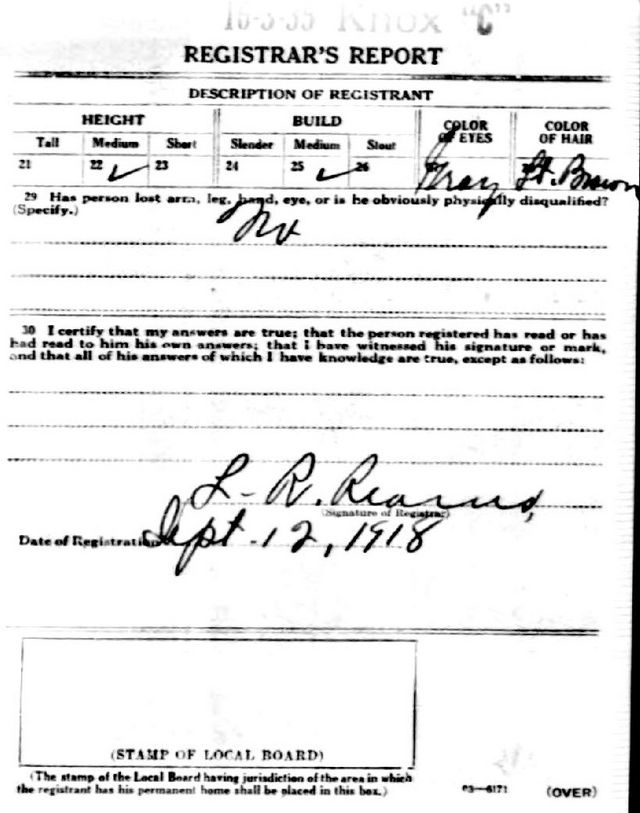 16-3-35 Knox "C"
REGISTRAR'S REPORT
DESCRIPTION OF REGISTRANT
HEIGHT BUILD COLOR OF EYES COLOR OF HAIR
Tall Medium Short Slender Medium Stout
21 22 ✓ 23 24 25 ✓ 26 Gray Lt. Brown
29 Has person lost arm, leg, hand, eye, or is he obviously physically disqualified?
(Specify.) No
30 I certify that my answers are true; that the person registered has read or has
had read to him his own answers; that I have witnessed his signature or mark,
and that all of his answers of which I have knowledge are true, except as follows:
L. R. Rearns,
(Signature of Registrar)
Date of Registration Sept. 12, 1918
(STAMP OF LOCAL BOARD)
(The stamp of the Local Board having jurisdiction of the area in which
the registrant has his permanent home shall be placed in this box.)
03—6171 (OVER)